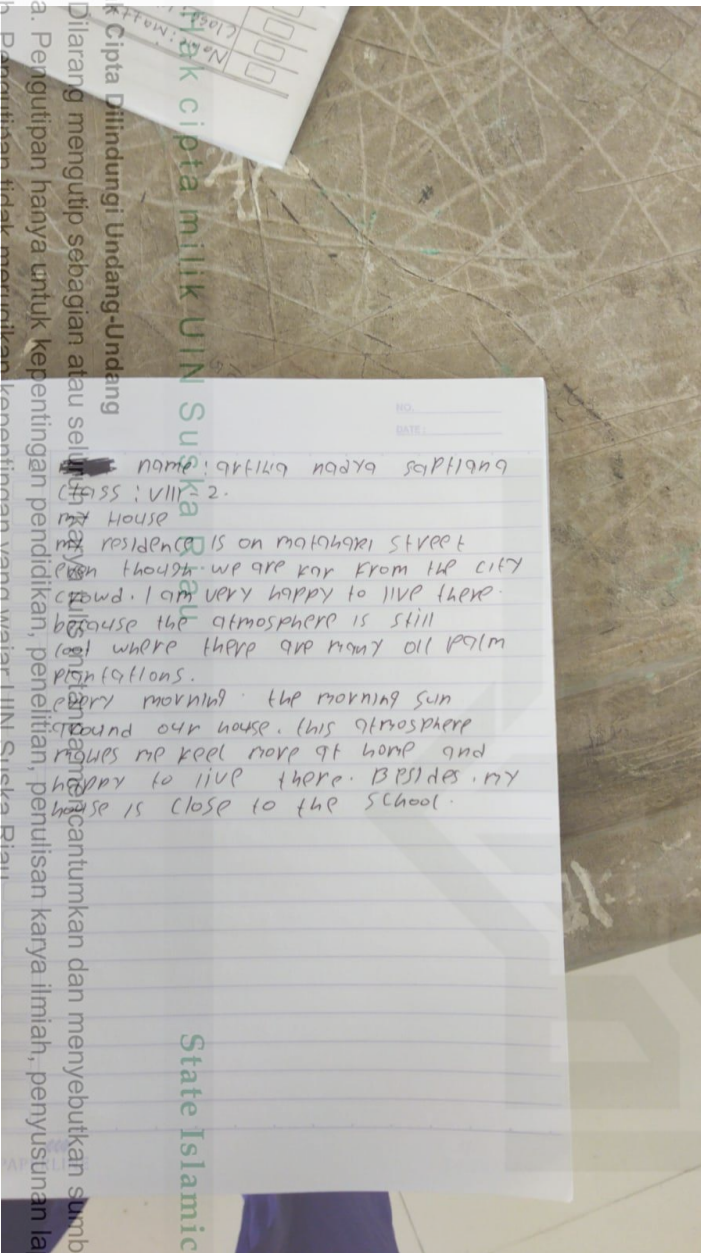 name : artika nadya saptiana
class : VIII - 2.
my House
my residence is on matahari street
even though we are far from the city
crowd. I am very happy to live there.
because the atmosphere is still
cool where there are many oil palm
plantations.
every morning. the morning sun
around our house. this atmosphere
makes me feel more at home and
happy to live there. Besides. my
house is close to the school.
NO.
DATE :
Hak cipta milik UIN Suska Riau
State Islamic
Cipta Dilindungi Undang-Undang
Dilarang mengutip sebagian atau seluruh karya tulis ini tanpa mencantumkan dan menyebutkan sumb
a. Pengutipan hanya untuk kepentingan pendidikan, penelitian, penulisan karya ilmiah, penyusunan la
b. Pengutipan tidak merugikan kepentingan yang wajar UIN Suska Riau
Name :
Class :